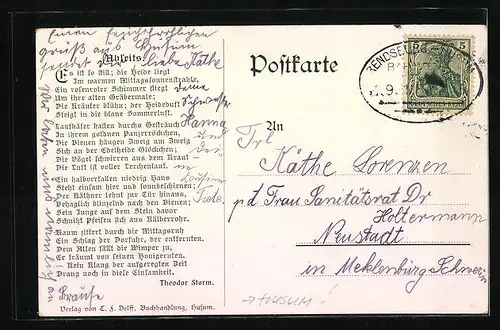 Einen
gruß aus Büsum
sendet Dir liebe Käthe
Abseits.
Es ist so still; die Heide liegt
Im warmen Mittagssonnenstrahle,
Ein rosenroter Schimmer fliegt
Um ihre alten Gräbermale;
Die Kräuter blühn; der Heideduft
Steigt in die blaue Sommerluft.
deine
Schwester
Hanna
Laufkäfer hasten durchs Gesträuch
In ihrem goldnen Panzerröckchen,
Die Bienen hängen Zweig um Zweig
Sich an der Edelheide Glöckchen;
Die Vögel schwirren aus dem Kraut —
Die Luft ist voller Lerchenlaut.
Ein halbverfallen niedrig Haus
Steht einsam hier und sonnbeschienen;
Der Käthner lehnt zur Tür hinaus,
Behaglich blinzelnd nach den Bienen;
Sein Junge auf dem Stein davor
Schnitzt Pfeifen sich aus Kälberrohr.
Kaum zittert durch die Mittagsruh
Ein Schlag der Dorfuhr, der entfernten.
Dem Alten fällt die Wimper zu,
Er träumt von seinen Honigernten.
— Kein Klang der aufgeregten Zeit
Drang noch in diese Einsamkeit.
Theodor Storm.
Verlag von C. F. Delff, Buchhandlung, Husum.
Postkarte
RENDSBURG
5
An
Frl
Käthe Lorenzen
p.d Frau Sanitätsrat Dr
Holtermann
Neustadt
in Meklenburg Schwerin
HUSUM!